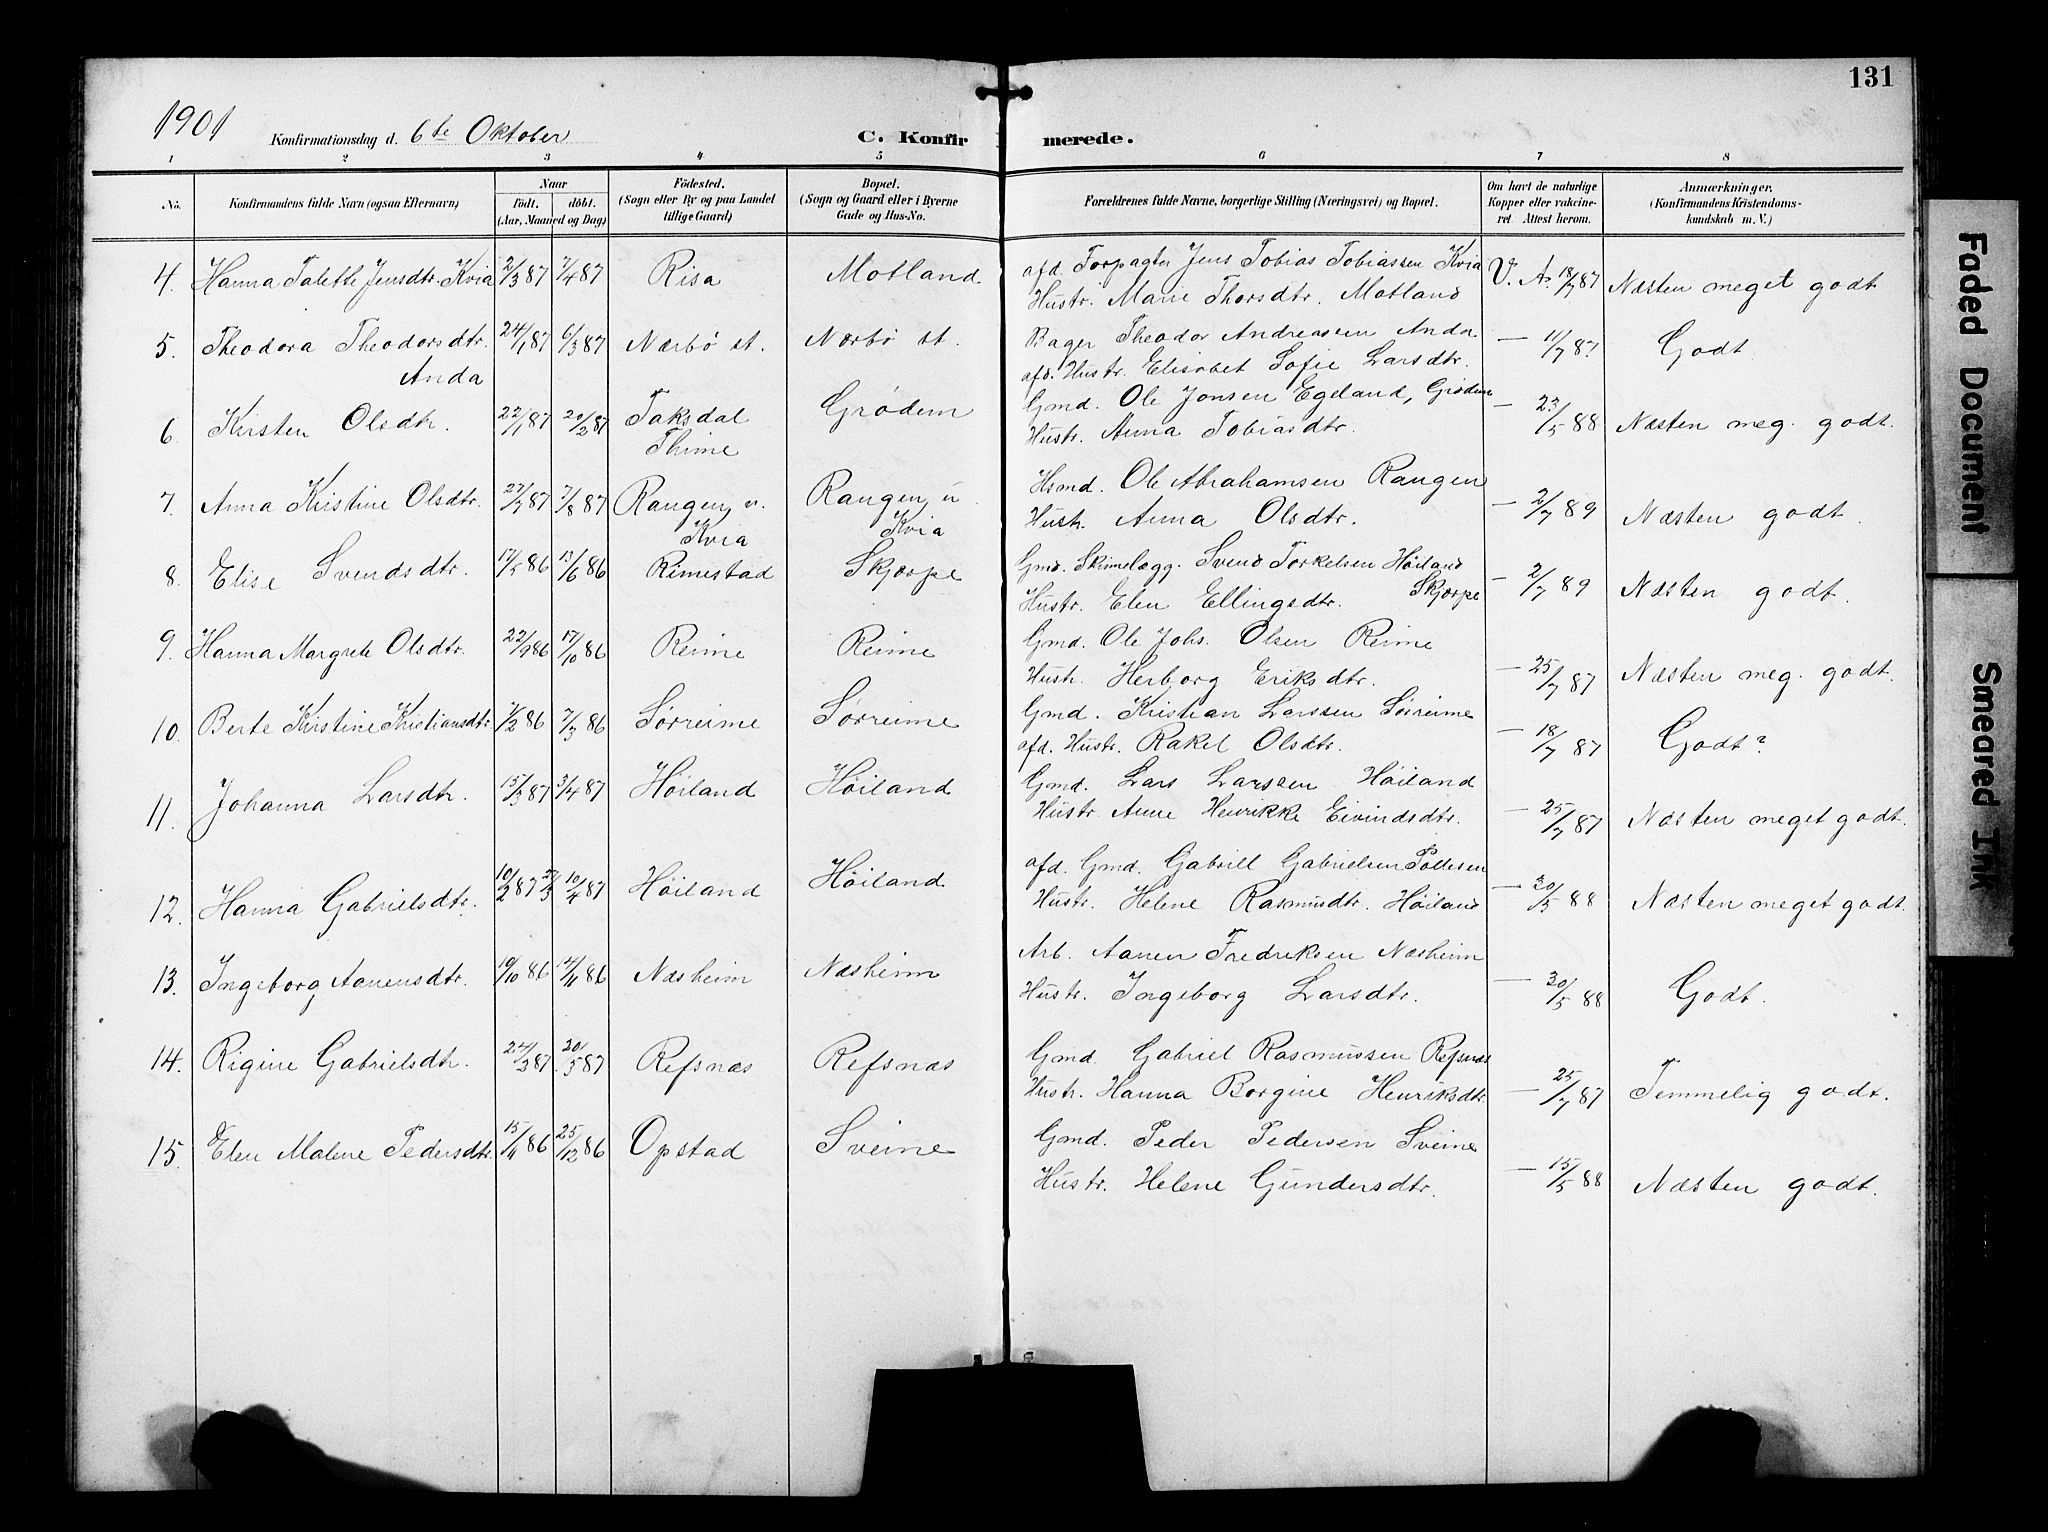 131
1901
Konfirmationsdag d. 6te Oktober
C. Konfirmerede.
1 2 3 4 5 6 7 8
No. Konfirmandens fulde Navn (ogsaa Efternavn) Naar født. døbt. (Aar, Maaned og Dag) Fødested. (Sogn eller By og paa Landet tillige Gaard) Bopæl. (Sogn og Gaard eller i Byerne Gade og Hus-No. Forældrenes fulde Navne, borgerlige Stilling (Næringsvei) og Bopæl. Om havt de naturlige Kopper eller vakcineret. Attest herom. Anmærkninger. (Konfirmandens Kristendomskundskab m. V.)
4. Hanna Talette Jensdtr. Kvia 2/3 87 7/4 87 Risa Motland afd. Forpagter Jens Tobias Tobiassen Kvia
Hustr. Marie Thorsdtr. Motland V. A. 18/7 87 Næsten meget godt
5. Theodora Theodorsdtr. 24/1 87 6/3 87 Nærbø st. Nærbø st. Bager Theodor Andreassen Anda
Anda afd. Hustr. Elisabet Sofie Larsdtr. — 11/7 87 Godt
6. Kirsten Olsdtr. 22/1 87 20/2 87 Taksdal Grødem Gmd. Ole Jonsen Egeland, Grødem
Thime Hustr. Anna Tobiasdtr. — 23/5 88 Næsten meg. godt.
7. Anna Kristine Olsdtr. 27/7 87 7/8 87 Rangen, u. Rangen, u Hsmd. Ole Abrahamsen Rangen
Kvia Kvia Hustr. Anna Olsdtr. — 2/7 89 Næsten godt.
8. Elise Svendsdtr. 17/5 86 13/6 86 Rimestad Skjærpe Gmd. Skinnelægg. Svend Torkelsen Høiland
Hustr. Elen Ellingsdtr. Skjærpe — 2/7 89 Næsten godt.
9. Hanna Margrete Olsdtr. 22/9 86 17/10 86 Reime Reime Gmd. Ole Johs. Olsen Reime
Hustr. Herborg Eriksdtr. — 25/7 87 Næsten meg. godt.
10. Berte Kristine Kristiansdtr. 7/2 86 7/3 86 Sørreime Sørreime Gmd. Kristian Larssen Sörreime
afd. Hustr. Rakel Olsdtr. — 18/7 87 Godt?
11. Johanna Larsdtr. 15/3 87 3/4 87 Høiland Høiland Gmd. Lars Larssen Høiland
Hustr. Anne Henrikke Eivindsdtr. — 25/7 87 Næsten meget godt.
12. Hanna Gabrielsdtr. 10/2 87 10/4 87 Høiland Høiland afd. Gmd. Gabriel Gabrielsen
Hustr. Helene Rasmusdtr. Høiland — 20/5 88 Næsten meget godt.
13. Ingeborg Aanensdtr. 19/10 86 14/11 86 Næsheim Næsheim Arb. Aanen Fredriksen Næsheim
Hustr. Ingeborg Larsdtr. — 20/5 88 Godt.
14. Rigine Gabrielsdtr. 24/3 87 20/3 87 Refsnæs Refsnæs Gmd. Gabriel Rasmussen Refsnæs
Hustr. Hanna Borgine Henriksdtr. — 25/7 87 Temmelig godt.
15. Elen Malene Pedersdtr. 15/11 86 25/12 86 Opstad Sveine Gmd. Peder Pedersen Sveine
Hustr. Helene Gundersdtr. — 15/5 88 Næsten godt.
Faded Document
Smeared Ink